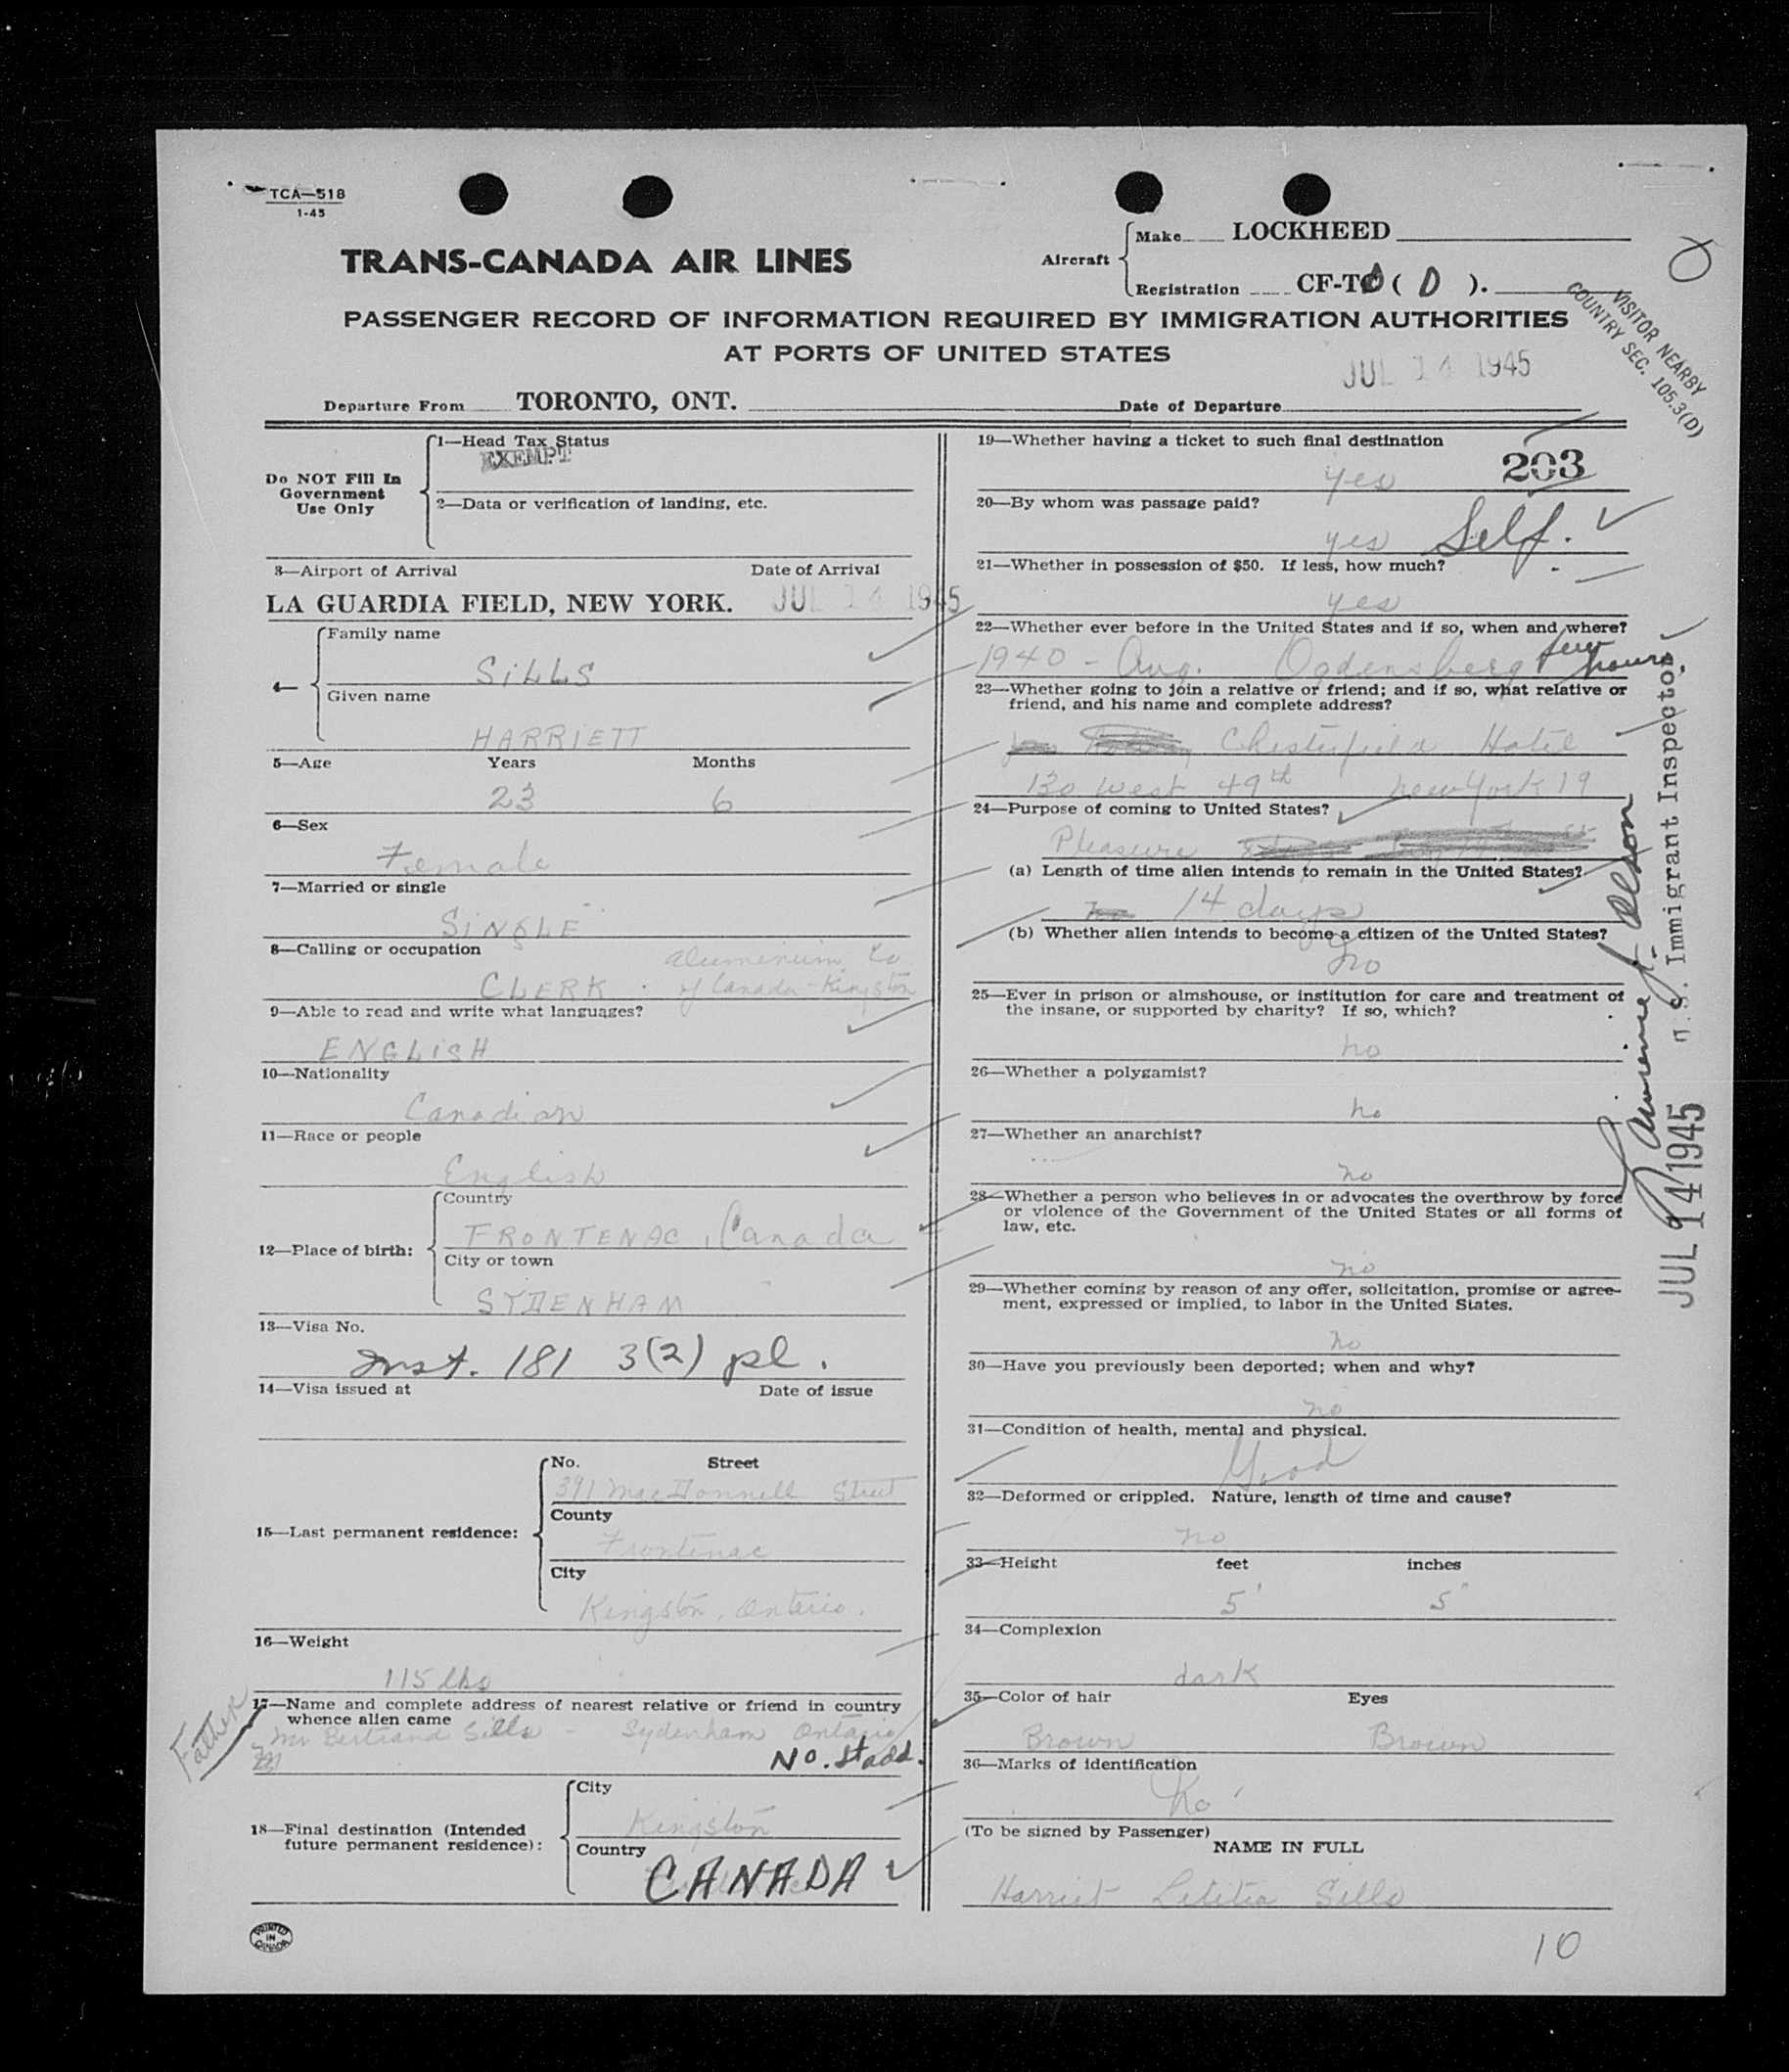 TCA—518
1-45
TRANS-CANADA AIR LINES
Aircraft
Make LOCKHEED
Registration CF-TC ( D ).
PASSENGER RECORD OF INFORMATION REQUIRED BY IMMIGRATION AUTHORITIES
AT PORTS OF UNITED STATES
VISITOR NEARBY
COUNTRY SEC. 105.3(D)
JUL 14 1945
Departure From TORONTO, ONT. Date of Departure
Do NOT Fill In
Government
Use Only
1—Head Tax Status
EXEMPT
2—Data or verification of landing, etc.
3—Airport of Arrival Date of Arrival
LA GUARDIA FIELD, NEW YORK. JUL 14 1945
4—
Family name
SILLS
Given name
HARRIETT
5—Age Years Months
23 6
6—Sex
Female
7—Married or single
SINGLE
8—Calling or occupation
aluminium Co
CLERK . of Canada - Kingston
9—Able to read and write what languages?
ENGLISH
10—Nationality
Canadian
11—Race or people
English
12—Place of birth:
Country
FRONTENAC, Canada
City or town
SYDENHAM
13—Visa No.
Inst. 181 3(2) pl.
14—Visa issued at Date of issue
15—Last permanent residence:
No. Street
391 MacDonnell Street
County
Frontenac
City
Kingston, Ontario.
16—Weight
115 lbs
Father
17—Name and complete address of nearest relative or friend in country
whence alien came
Mr Bertrand Sills - Sydenham Ontario
No. St add.
18—Final destination (Intended
future permanent residence):
City
Kingston
Country
CANADA
PRINTED
IN
CANADA
19—Whether having a ticket to such final destination
yes 203
20—By whom was passage paid?
yes Self.
21—Whether in possession of $50. If less, how much?
yes
22—Whether ever before in the United States and if so, when and where?
1940 - Aug. Ogdensberg few hours.
23—Whether going to join a relative or friend; and if so, what relative or
friend, and his name and complete address?
Chesterfield Hotel
130 West 49th New York 19
24—Purpose of coming to United States?
Pleasure
(a) Length of time alien intends to remain in the United States?
14 days
(b) Whether alien intends to become a citizen of the United States?
no
25—Ever in prison or almshouse, or institution for care and treatment of
the insane, or supported by charity? If so, which?
no
26—Whether a polygamist?
no
27—Whether an anarchist?
no
28—Whether a person who believes in or advocates the overthrow by force
or violence of the Government of the United States or all forms of
law, etc.
no
29—Whether coming by reason of any offer, solicitation, promise or agree-
ment, expressed or implied, to labor in the United States.
no
30—Have you previously been deported; when and why?
no
31—Condition of health, mental and physical.
Good
32—Deformed or crippled. Nature, length of time and cause?
no
33—Height feet inches
5' 5"
34—Complexion
dark
35—Color of hair Eyes
Brown Brown
36—Marks of identification
No
(To be signed by Passenger)
NAME IN FULL
Harriet Letitia Sills
10
U.S. Immigrant Inspector
JUL 14 1945